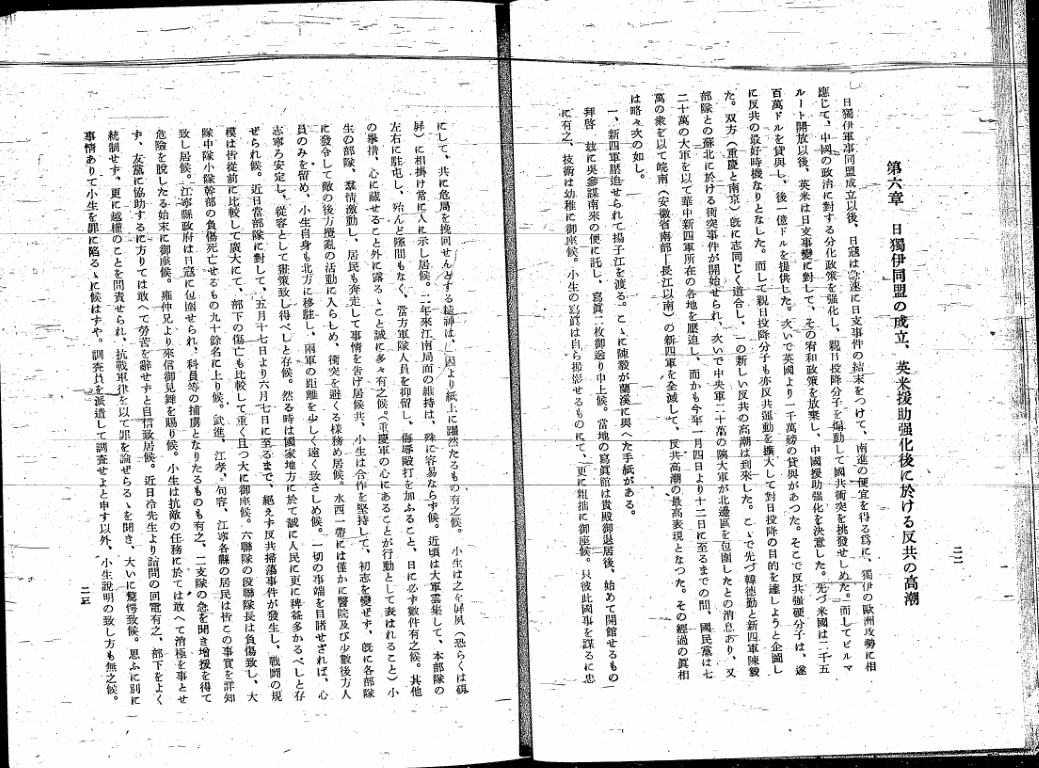 二二
第六章 日獨伊同盟の成立、英米援助强化後に於ける反共の高潮
日獨伊軍事同盟成立以後、日寇は急速に日支事件の結末をつけて、南進の便宜を得る爲に、獨伊の歐洲攻勢に相
應じて、中國の政治に對する分化政策を强化し、親日投降分子を煽動して國共衝突を挑發せしめた。而してビルマ
ルート開放以後、英米は日支事變に對して、その宥和政策を放棄し、中國援助强化を決意した。先づ米國は二千五
百萬ドルを貸與し、後一億ドルを提供した。次いで英國より一千萬磅の貸與があつた。そこで反共强硬分子は、遂
に反共の最好時機なりとなした。而して親日投降分子も亦反共運動を擴大して對日投降の目的を達しようと企圖し
た。双方(重慶と南京)旣に志同じく道合し、一の新しい反共の高潮は到來した。こゝで先づ韓德勤と新四軍陳毅
部隊との蘇北に於ける衝突事件が開始せられ、次いで中央軍二十萬の大軍が北邊區を包圍したとの消息あり、又
二十萬の大軍を以て華中新四軍所在の各地を壓迫し、而かも今年一月四日より十二日に至るまでの間、國民黨は七
萬の衆を以て皖南(安徽省南部―長江以南)の新四軍を全滅して、反共高潮の最高表現となつた。その經過の眞相
は略々次の如し。
一、新四軍壓迫せられて揚子江を渡る。こゝに陳毅が蘭溪に與へた手紙がある。
拜啓 玆に吳參謀南來の便に託し、寫眞二枚御送り申上候。當地の寫眞館は貴殿御退居後、始めて開館せるもの
に有之、技術は幼稚に御座候。小生の寫眞は自ら撮影せるものにて、更に粗拙に御座候。只彼此國事を謀るに忠
にして、共に危局を挽回せんとする精神は、固より紙上に躍然たるもの有之候。小生は之を屛夙(恐らくは硯
屛)に相掛け常に人に示し居候。二年來江南局面の維持は、殊に容易ならず候。近頃は大軍雲集して、本部隊の
左右に駐屯し、殆んど隙間もなく、當方軍隊人員を抑留し、侮辱毆打を加ふること、日に必ず數件有之候。其他
の擧措、心に藏せること外に露るゝこと誠に多々有之候。(重慶軍の心にあることが行動として表はれること)小
生の部隊、羣情激動し、居民も奔走して事情を吿げ居候共、小生は合作を堅持して、初志を變ぜず、旣に各部隊
に發令して敵の後方擾亂の活動に入らしめ、衝突を避くる樣務め居候。水西一帶には僅かに醫院及び少數後方人
員のみを留め、小生自身も北方に移駐し、兩軍の距離を少しく遠く致さしめ候。一切の事端を目睹せざれば、心
志寧ろ安定し、從容として畫策致し得べしと存候。然る時は國家地方に於て誠に人民に更に裨益多かるべしと存
ぜられ候。近日當部隊に對して、五月十七日より六月七日に至るまで、絕えず反共掃蕩事件が發生し、戰鬪の規
模は皆從前に比較して廣大にて、部下の傷亡も比較して重く且つ大に御座候。六聯隊の段聯隊長は負傷致し、大
隊中隊小隊幹部の負傷死亡せるもの九十餘名に上り候。武進、江孝、句容、江寧各縣の居民は皆この事實を詳知
致し居候。江寧縣政府は日寇に包圍せられ、科員等の捕虜となりたるものも有之、二支隊の急を聞き增援を得て
危險を脫したる始末に御座候。雍仲兄より來信御見舞を賜り候。小生は抗敵の任務に於ては敢へて消極を事とせ
ず、友黨に協助するに方りては敢へて勞苦を辭せずと自信致居候。近日冷先生より詰問の囘電有之、部下をよく
統制せず、更に越權のことを問責せられ、抗戰軍律を以て罪を論ぜらるゝを聞き、大いに驚愕致候。思ふに別に
事情ありて小生を罪に陷るゝに候はずや。調查員を派遣して調查せよと申す以外、小生說明の致し方も無之候。
二三